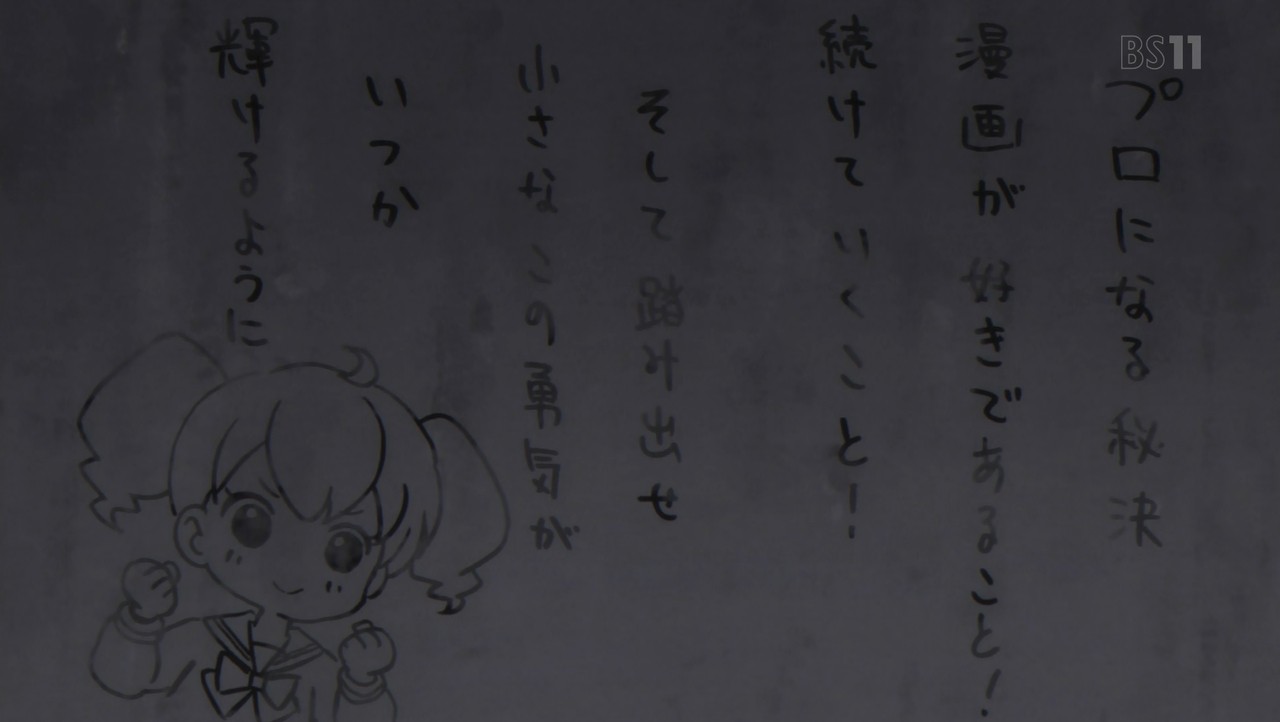 BS11
プロになる秘訣
漫画が好きであること!
続けていくこと!
そして踏み出せ
小さなこの勇気が
いつか
輝けるように